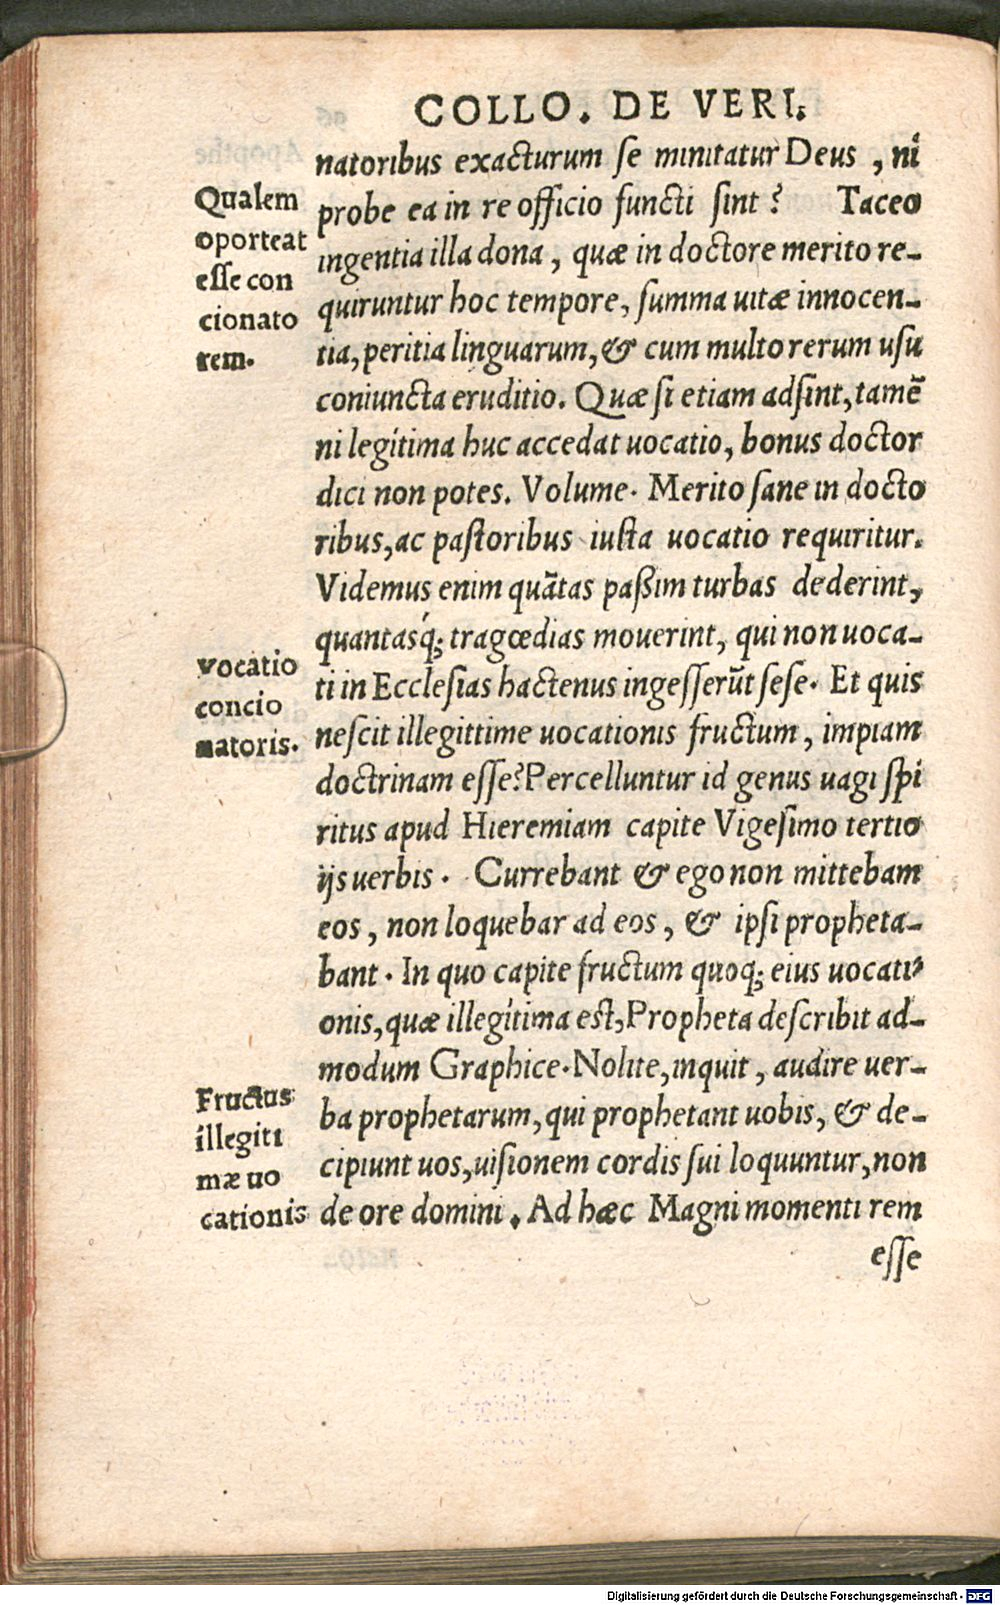 COLLO. DE VERI.
natoribus exacturum se minitatur Deus, ni
probe ea in re officio functi sint? Taceo
ingentia illa dona, quæ in doctore merito re-
quiruntur hoc tempore, summa uitæ innocen-
tia, peritia linguarum, & cum multo rerum usu
coniuncta eruditio. Quæ si etiam adsint, tamē
ni legítima huc accedat uocatio, bonus doctor
dici non potes. Volume. Merito sane in docto
ribus, ac pastoribus iusta uocatio requiritur.
Videmus enim quātas paßim turbas dederint,
quantasq́; tragœdias mouerint, qui non uoca-
ti in Ecclesias hactenus ingesserūt sese. Et quis
nescit illegittime uocationis fructum, impiam
doctrinam esse? Percelluntur id genus uagi spi
ritus apud Hieremiam capite Vigesimo tertio
ijs uerbis. Currebant & ego non mittebam
eos, non loquebar ad eos, & ipsi propheta-
bant. In quo capite fructum quoq; eius uocati-
onis, quæ illegítima est, Propheta describit ad-
modum Graphice. Nolite, inquit, audire uer-
ba prophetarum, qui prophetant uobis, & de-
cipiunt uos, uisionem cordis sui loquuntur, non
de ore domini. Ad hæc Magni momenti rem
esse
Qualem
oporteat
esse con
cionato
rem.
vocatio
concio
natoris.
Fructus
illegiti
mæ uo
cationis
Digitalisierung gefördert durch die Deutsche Forschungsgemeinschaft - DFG